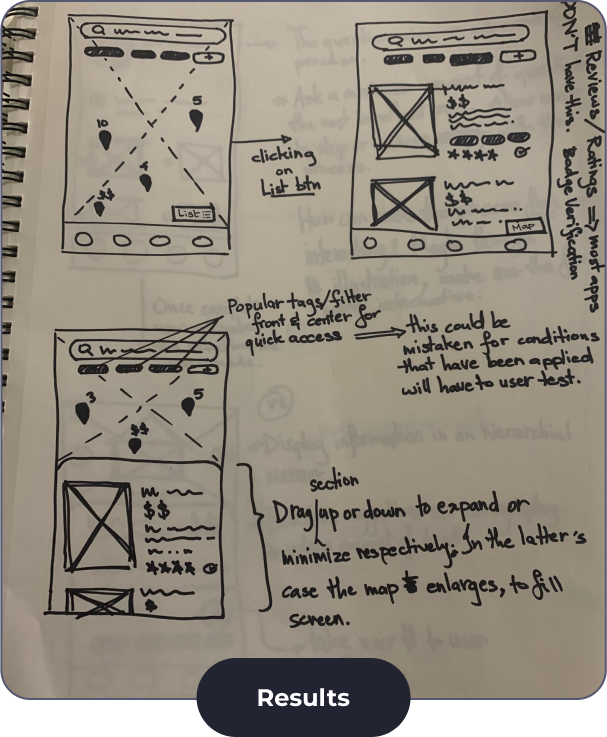 5
10
4
$$
List
clicking
on
List btn
$$
****
$$
Map
Reviews/Ratings ⇒ most apps
DON'T have this. Badge Verification
Popular tags/filter
front & center for
quick access
this could be
mistaken for conditions
that have been applied
will have to user test.
3
5
$$
$$
****
$
section
Drag/up or down to expand or
minimize respectively. In the latter's
case the map enlarges, to fill
screen.
Results